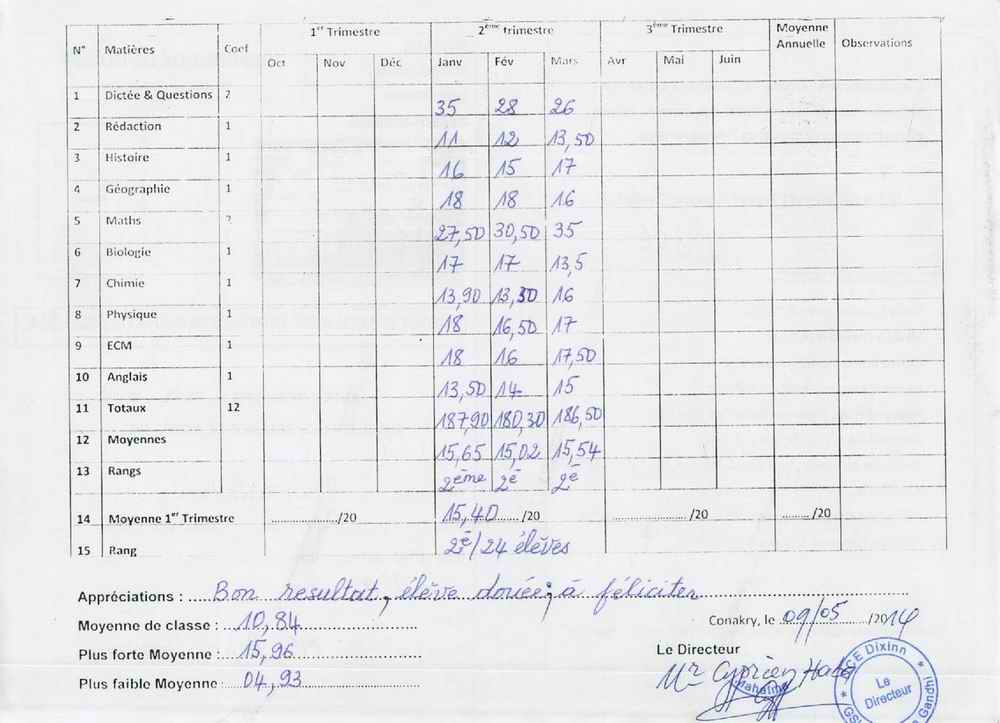 N° Matières Coef 1er Trimestre 2ème trimestre 3ème Trimestre Moyenne Annuelle Observations
Oct Nov Déc Janv Fév Mars Avr Mai Juin
1 Dictée & Questions 2 35 28 26
2 Rédaction 1 11 12 13,50
3 Histoire 1 16 15 17
4 Géographie 1 18 18 16
5 Maths 2 27,50 30,50 35
6 Biologie 1 17 17 13,5
7 Chimie 1 13,90 13,30 16
8 Physique 1 18 16,50 17
9 ECM 1 18 16 17,50
10 Anglais 1 13,50 14 15
11 Totaux 12 187,90 180,30 186,50
12 Moyennes 15,65 15,02 15,54
13 Rangs 2ème 2è 2è
14 Moyenne 1er Trimestre ................./20 15,40....../20 ................./20 ......../20
15 Rang 2è/24 élèves
Appréciations : ....Bon resultat, élève douée; à féliciter
Moyenne de classe :...10,84
Conakry, le 09/05 /2014
Plus forte Moyenne :...15,96
Le Directeur
Plus faible Moyenne :....04,93
Mr Cyprien
CE Dixinn
Le Directeur
Mahatma Gandhi